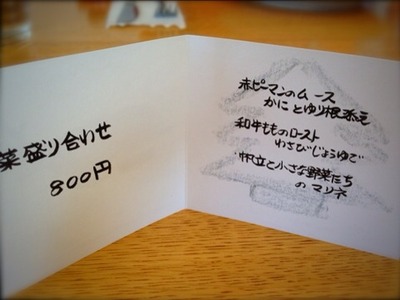 菜盛り合わせ
800円
赤ピーマンのムース
かにとゆり根添え
和牛もものロースト
わさびじょうゆで
帆立と小さな野菜たち
のマリネ